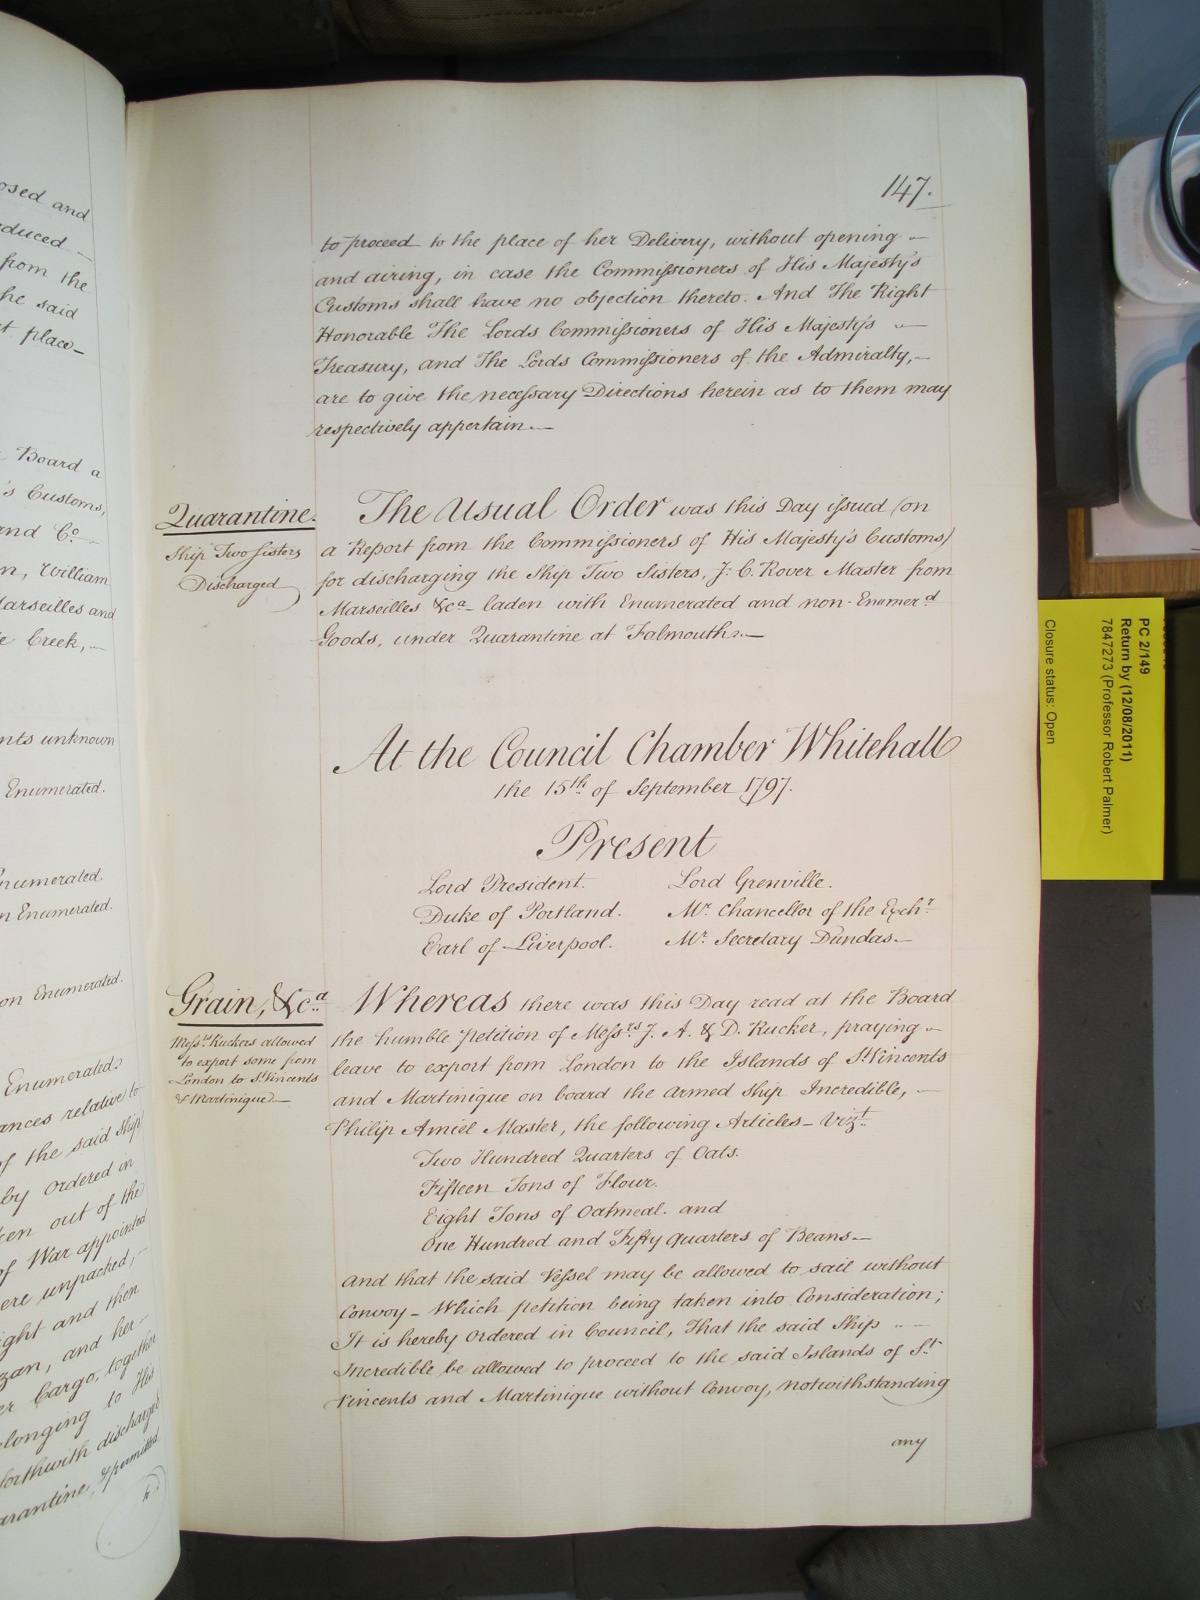 osed and
duced
from the
he said
t place
Board a
's Customs,
and Co.
n, William
Marseilles and
e Creek,
nts unknown
Enumerated.
numerated.
n Enumerated.
on Enumerated.
Enumerated
ances relative to
of the said Ship
by ordered in
en out of the
of War appointed
ere unpacked,
ight and then
zan, and her
er Cargo, together
longing to His
forthwith discharged
arantine, & permitted
to
147.
to proceed to the place of her Delivery, without opening
and airing, in case the Commissioners of His Majesty's
Customs shall have no objection thereto. And The Right
Honorable The Lords Commissioners of His Majesty's
Treasury, and The Lords Commissioners of the Admiralty,
are to give the necessary Directions herein as to them may
respectively appertain.
Quarantine.
Ship Two Sisters
Discharged
The Usual Order was this Day issued (on
a Report from the Commissioners of His Majesty's Customs)
for discharging the Ship Two Sisters, J: C. Rover Master from
Marseilles &ca laden with Enumerated and non-Enumerd
Goods, under Quarantine at Falmouth.
At the Council Chamber Whitehall
the 15th of September 1797.
Present
Lord President. Lord Grenville.
Duke of Portland. Mr Chancellor of the Exchr
Earl of Liverpool. Mr Secretary Dundas
Grain, &ca
Messrs Ruckers allowed
to export some from
London to St Vincents
& Martinique
Whereas there was this Day read at the Board
the humble Petition of Messrs J. A. & D. Rucker, praying
leave to export from London to the Islands of St Vincents
and Martinique on board the armed Ship Incredible,
Philip Amiel Master, the following Articles Vizt
Two Hundred Quarters of Oats.
Fifteen Tons of Flour.
Eight Tons of Oatmeal. and
One Hundred and Fifty Quarters of Beans
And that the said Vessel may be allowed to sail without
Convoy - Which Petition being taken into Consideration;
It is hereby Ordered in Council, That the said Ship
Incredible be allowed to proceed to the said Islands of St
Vincents and Martinique without Convoy, notwithstanding
any
PC 2/149
Return by (12/08/2011)
7847273 (Professor Robert Palmer)
Closure status: Open